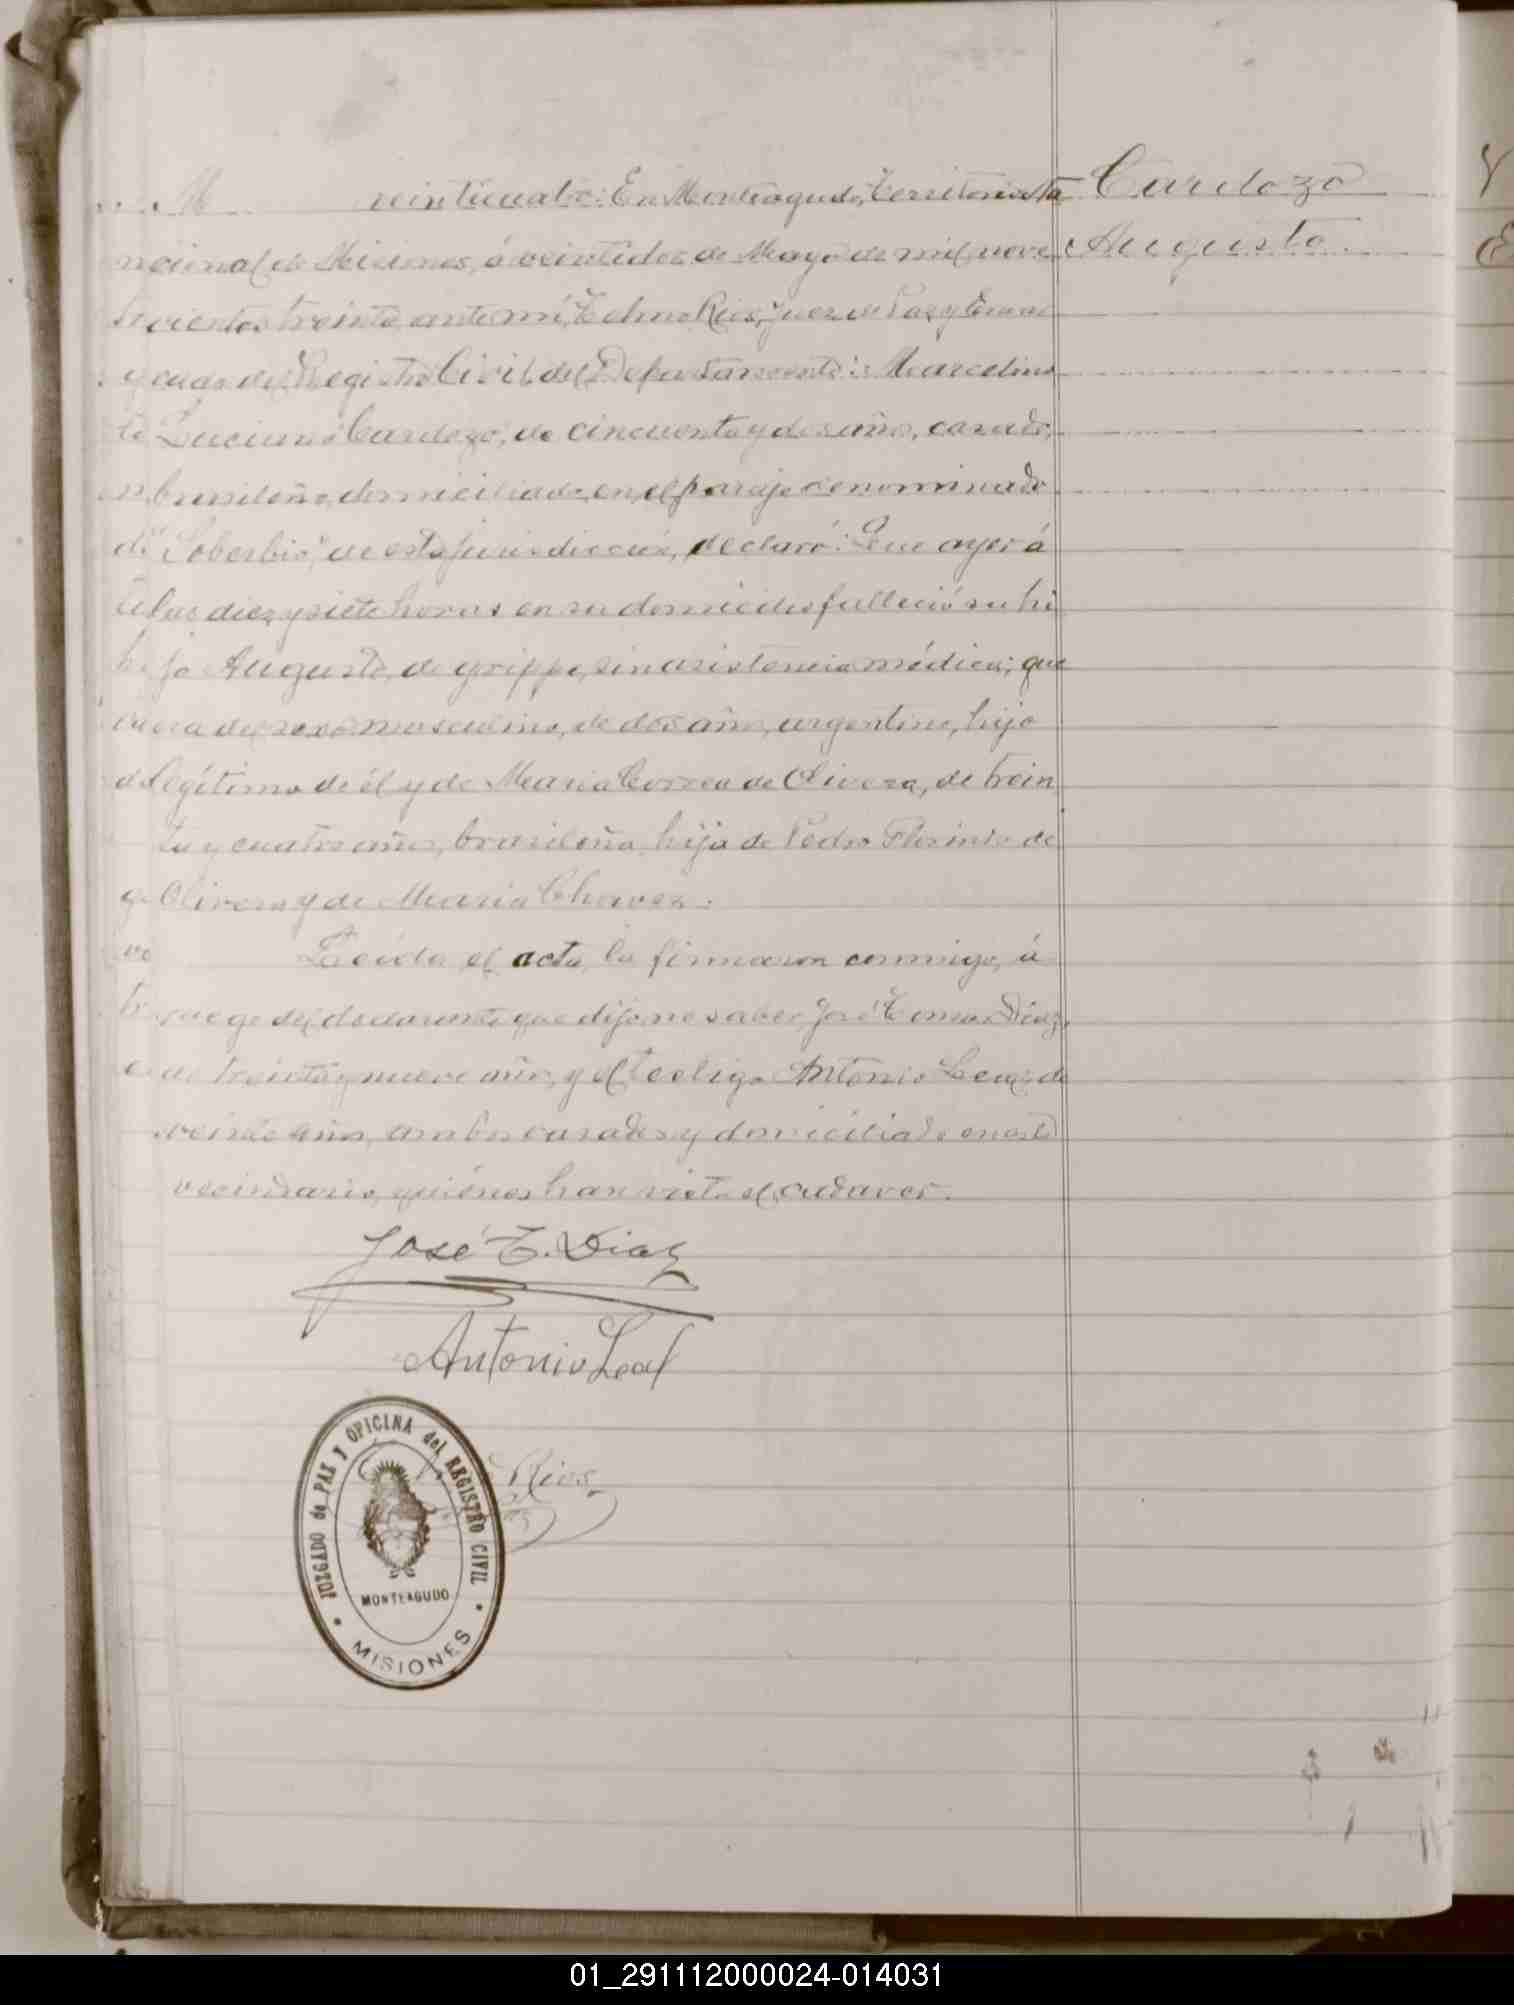 veinticuatro: En Monteagudo, Territorio Na
Cardozo
cional de Misiones, á veintidos de Mayo de mil nove
Augusto.
cientos treinta ante mí, Telmo Rios, Juez de Paz y Encar
gado del Registro Civil del Departamento: Marcelino
Luciano Cardozo, de cincuenta y dos años, casado,
brasileño, domiciliado en el paraje denominado
"Soberbio", de esta jurisdiccion, declaró: Que ayer á
las diez y siete horas en su domicilio falleció su hi
jo Augusto, de grippe, sin asistencia médica; que
era del sexo masculino, de dos años, argentino, hijo
legítimo de él y de Maria Correa de Olivera, de trein
ta y cuatro años, brasileña, hija de Pedro Florinto de
Olivera y de Maria Chavez.
Leida el acta, la firmaron conmigo, á
ruego del declarante que dijo no saber José Tomas Diaz,
de treinta y nueve años, y el testigo Antonio Leal, de
veinte años, ambos casados y domiciliado en este
vecindario, quiénes han visto el cadaver.
José T. Diaz
Antonio Leal
Rios
JUZGADO de PAZ Y OFICINA del REGISTRO CIVIL
MONTEAGUDO
MISIONES
01_291112000024-014031